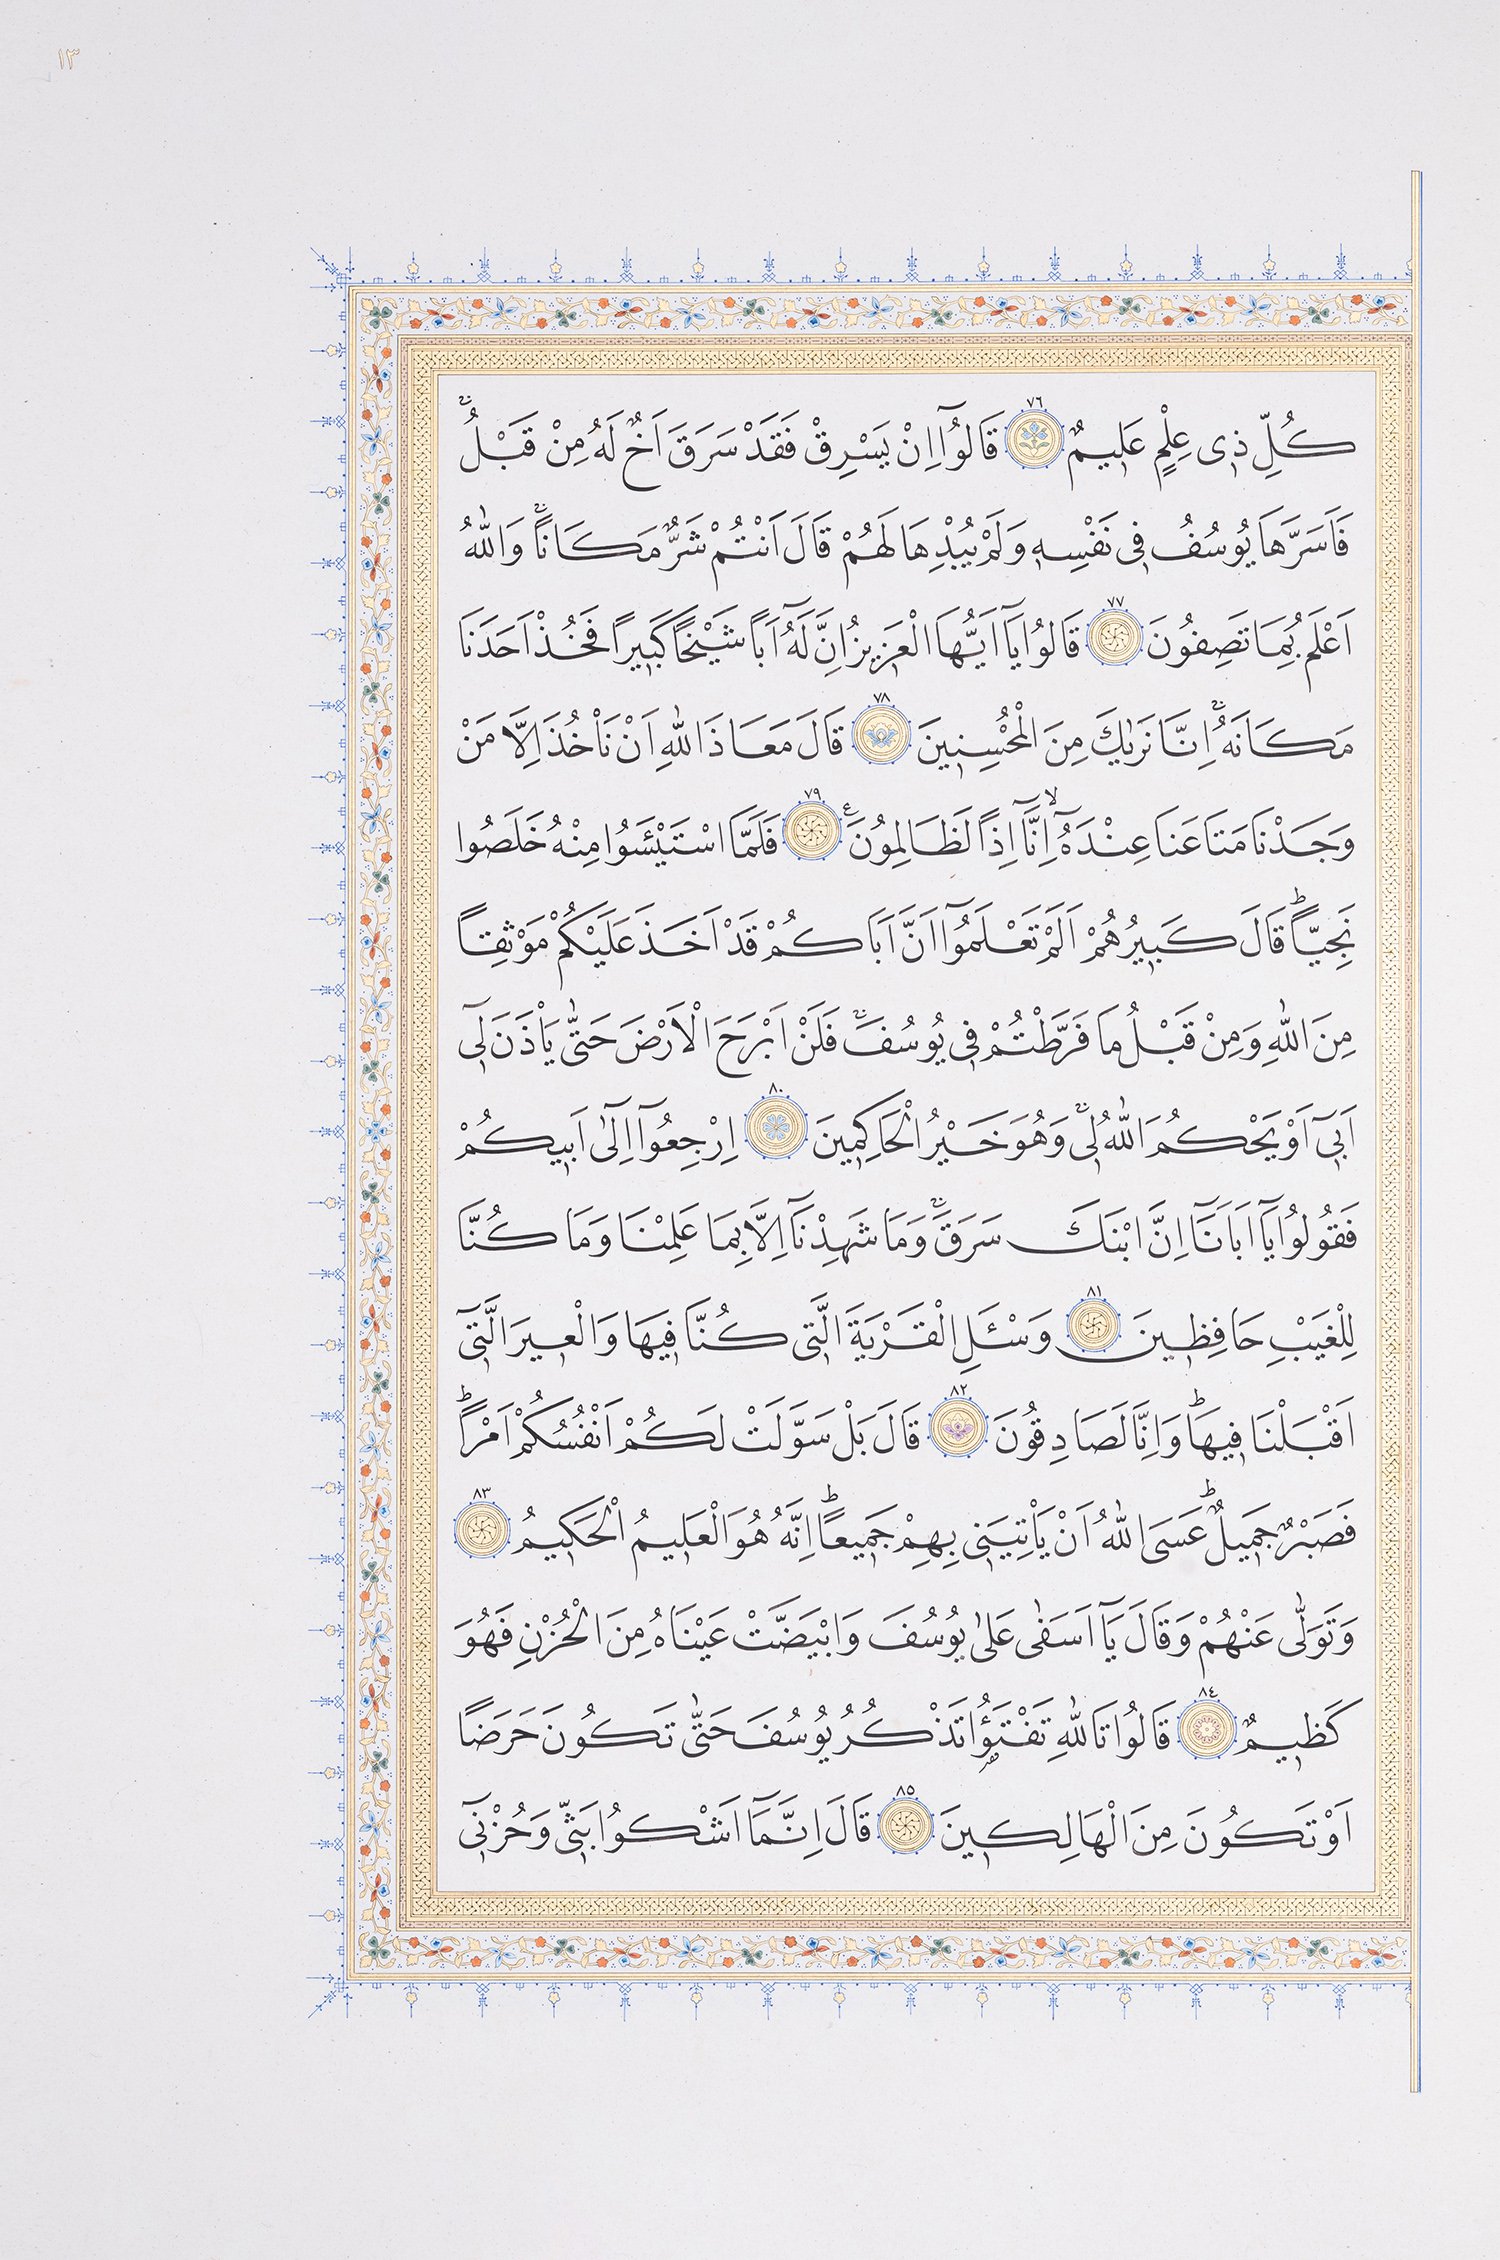 ١٣
كُلِّ ذِى عِلْمٍ عَلِيمٌ ٧٦ قَالُوٓا اِنْ يَسْرِقْ فَقَدْ سَرَقَ اَخٌ لَهُ مِنْ قَبْلُۚ
فَاَسَرَّهَا يُوسُفُ فِى نَفْسِهِ وَلَمْ يُبْدِهَا لَهُمْ قَالَ اَنْتُمْ شَرٌّ مَكَانًاۚ وَاللّٰهُ
اَعْلَمُ بِمَا تَصِفُونَ ٧٧ قَالُوا يَٓا اَيُّهَا الْعَزِيزُ اِنَّ لَهُٓ اَبًا شَيْخًا كَبِيرًا فَخُذْ اَحَدَنَا
مَكَانَهُۚ اِنَّا نَرٰيكَ مِنَ الْمُحْسِنِينَ ٧٨ قَالَ مَعَاذَ اللّٰهِ اَنْ نَأْخُذَ اِلَّا مَنْ
وَجَدْنَا مَتَاعَنَا عِنْدَهُٓۙ اِنَّٓا اِذًا لَظَالِمُونَ ٧٩ فَلَمَّا اسْتَيْـَٔسُوا مِنْهُ خَلَصُوا
نَجِيًّاؕ قَالَ كَبِيرُهُمْ اَلَمْ تَعْلَمُوٓا اَنَّ اَبَاكُمْ قَدْ اَخَذَ عَلَيْكُمْ مَوْثِقًا
مِنَ اللّٰهِ وَمِنْ قَبْلُ مَا فَرَّطْتُمْ فِى يُوسُفَۚ فَلَنْ اَبْرَحَ الْاَرْضَ حَتّٰى يَأْذَنَ لِٓى
اَبِٓى اَوْ يَحْكُمَ اللّٰهُ لِىۚ وَهُوَ خَيْرُ الْحَاكِمِينَ ٨٠ اِرْجِعُوٓا اِلٰٓى اَبِيكُمْ
فَقُولُوا يَٓا اَبَانَٓا اِنَّ ابْنَكَ سَرَقَۚ وَمَا شَهِدْنَٓا اِلَّا بِمَا عَلِمْنَا وَمَا كُنَّا
لِلْغَيْبِ حَافِظِينَ ٨١ وَسْـَٔلِ الْقَرْيَةَ الَّتِى كُنَّا فِيهَا وَالْعِيرَ الَّتِٓى
اَقْبَلْنَا فِيهَاؕ وَاِنَّا لَصَادِقُونَ ٨٢ قَالَ بَلْ سَوَّلَتْ لَكُمْ اَنْفُسُكُمْ اَمْرًاؕ
فَصَبْرٌ جَمِيلٌؕ عَسَى اللّٰهُ اَنْ يَأْتِيَنِى بِهِمْ جَمِيعًاؕ اِنَّهُ هُوَ الْعَلِيمُ الْحَكِيمُ ٨٣
وَتَوَلّٰى عَنْهُمْ وَقَالَ يَٓا اَسَفٰى عَلٰى يُوسُفَ وَابْيَضَّتْ عَيْنَاهُ مِنَ الْحُزْنِ فَهُوَ
كَظِيمٌ ٨٤ قَالُوا تَاللّٰهِ تَفْتَؤُا تَذْكُرُ يُوسُفَ حَتّٰى تَكُونَ حَرَضًا
اَوْ تَكُونَ مِنَ الْهَالِكِينَ ٨٥ قَالَ اِنَّمَٓا اَشْكُوا بَثِّى وَحُزْنِٓى